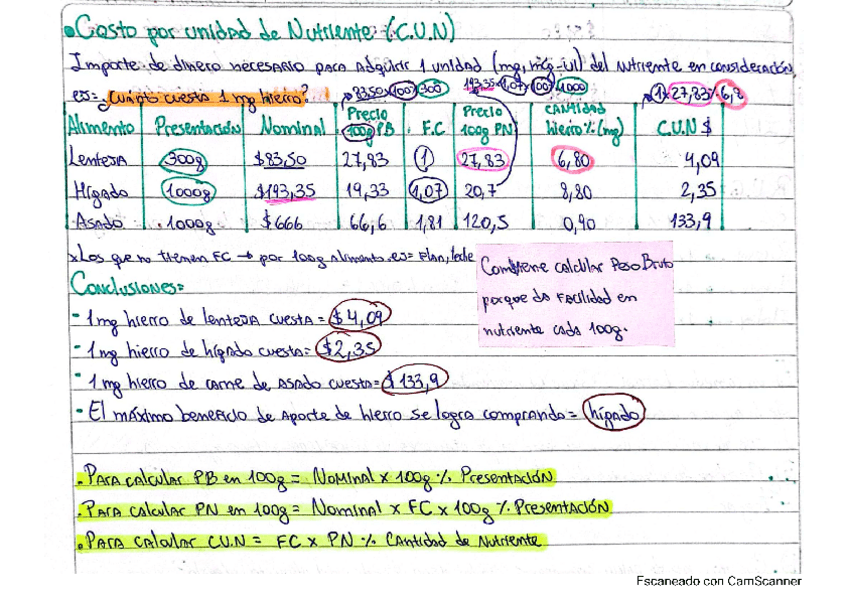 Costo por unidad de Nutriente (C.U.N)
Importe de dinero necesario para adquirir 1 unidad (mg, mcg-UI) del nutriente en consideración,
es= ¿Cuánto cuesta 1 mg hierro? 8350x100%300 193,35x1,07x100%1000 1x27,83%6,8
Alimento Presentación Nominal Precio 100g PB F.C Precio 100g PN CANtidad hierro % (mg) C.U.N $
Lenteja 300g $83,50 27,83 1 27,83 6,80 4,09
Hígado 1000g $193,35 19,33 1,07 20,7 8,80 2,35
Asado 1000g $666 66,6 1,81 120,5 0,90 133,9
xLos que no tienen FC → por 100g alimento. es= Flan, leche
Conviene calcular Peso Bruto
porque da facilidad en
nutriente cada 100g.
Conclusiones=
- 1mg hierro de lenteja cuesta= $4,09
- 1mg hierro de hígado cuesta= $2,35
- 1mg hierro de carne de asado cuesta= $133,9
• El máximo beneficio de aporte de hierro se logra comprando= hígado
. Para calcular PB en 100g = Nominal x 100g % Presentación
. Para calcular PN en 100g = Nominal x FC x 100g % Presentación
. Para calcular C.U.N = FC x PN % Cantidad de Nutriente
Escaneado con CamScanner